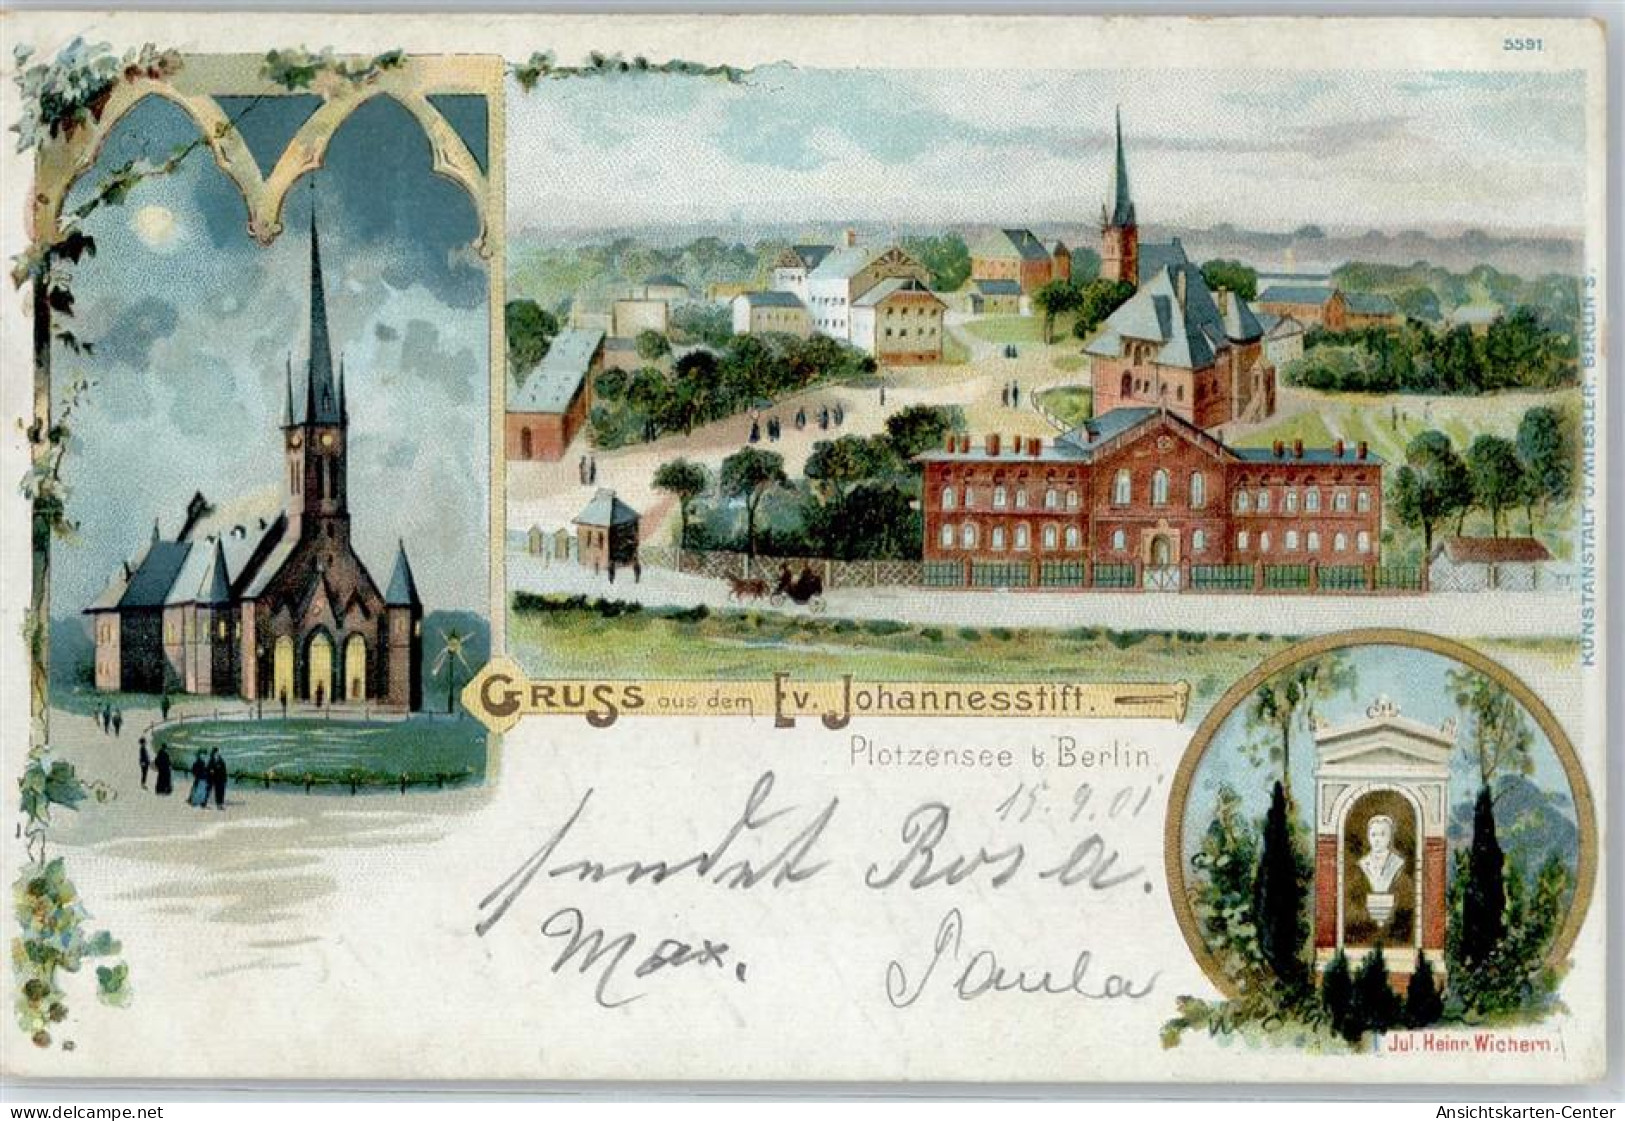 5591
KUNSTANSTALT J. MIESLER, BERLIN S.
GRUSS aus dem Ev. Johannesstift.
Plötzensee b Berlin.
15.9.01
sendet Rosa.
Max. Paula
Jul. Heinr. Wichern.
www.delcampe.net
Ansichtskarten-Center